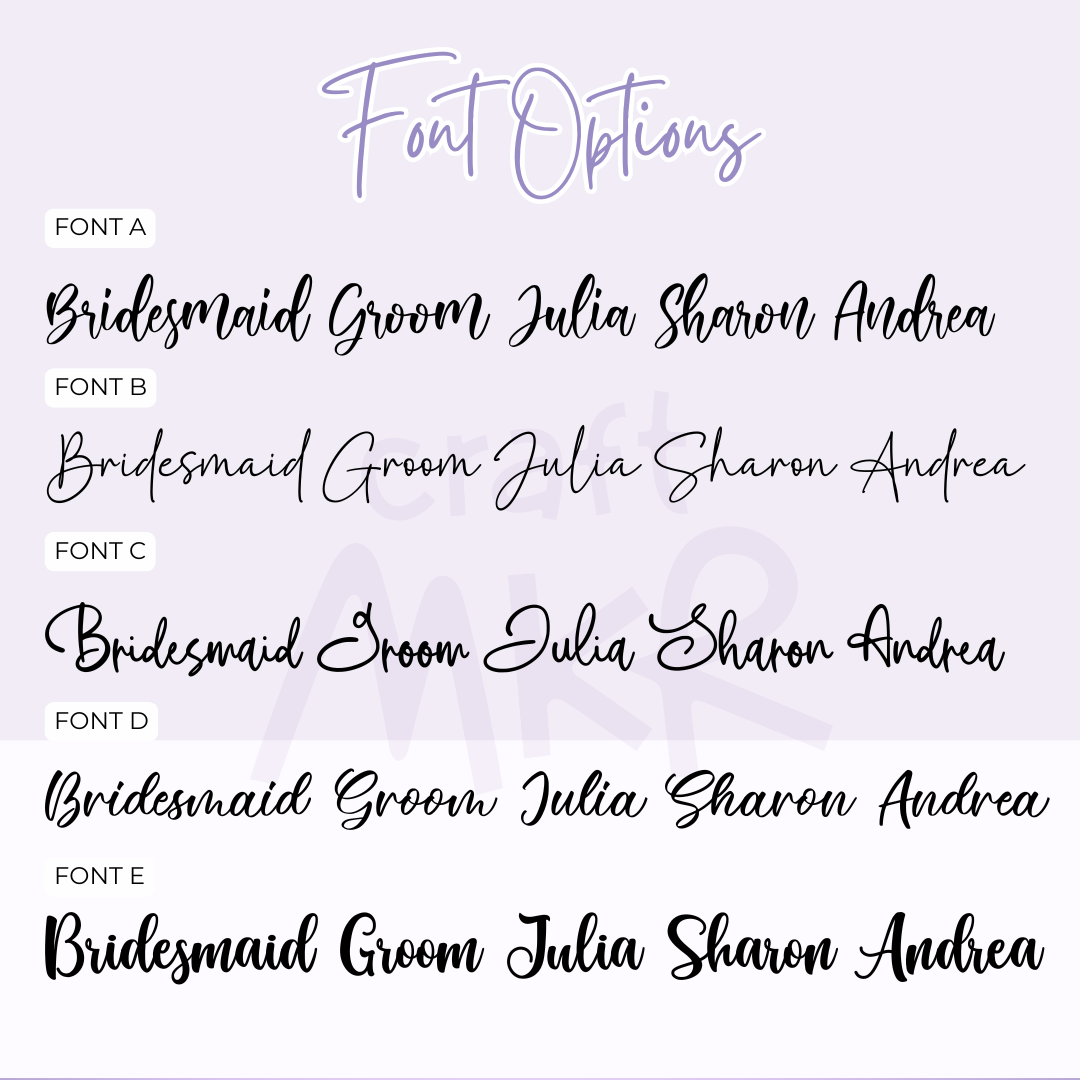 Font Options
FONT A
Bridesmaid Groom Julia Sharon Andrea
FONT B
Bridesmaid Groom Julia Sharon Andrea
craft
MKR
FONT C
Bridesmaid Groom Julia Sharon Andrea
FONT D
Bridesmaid Groom Julia Sharon Andrea
FONT E
Bridesmaid Groom Julia Sharon Andrea